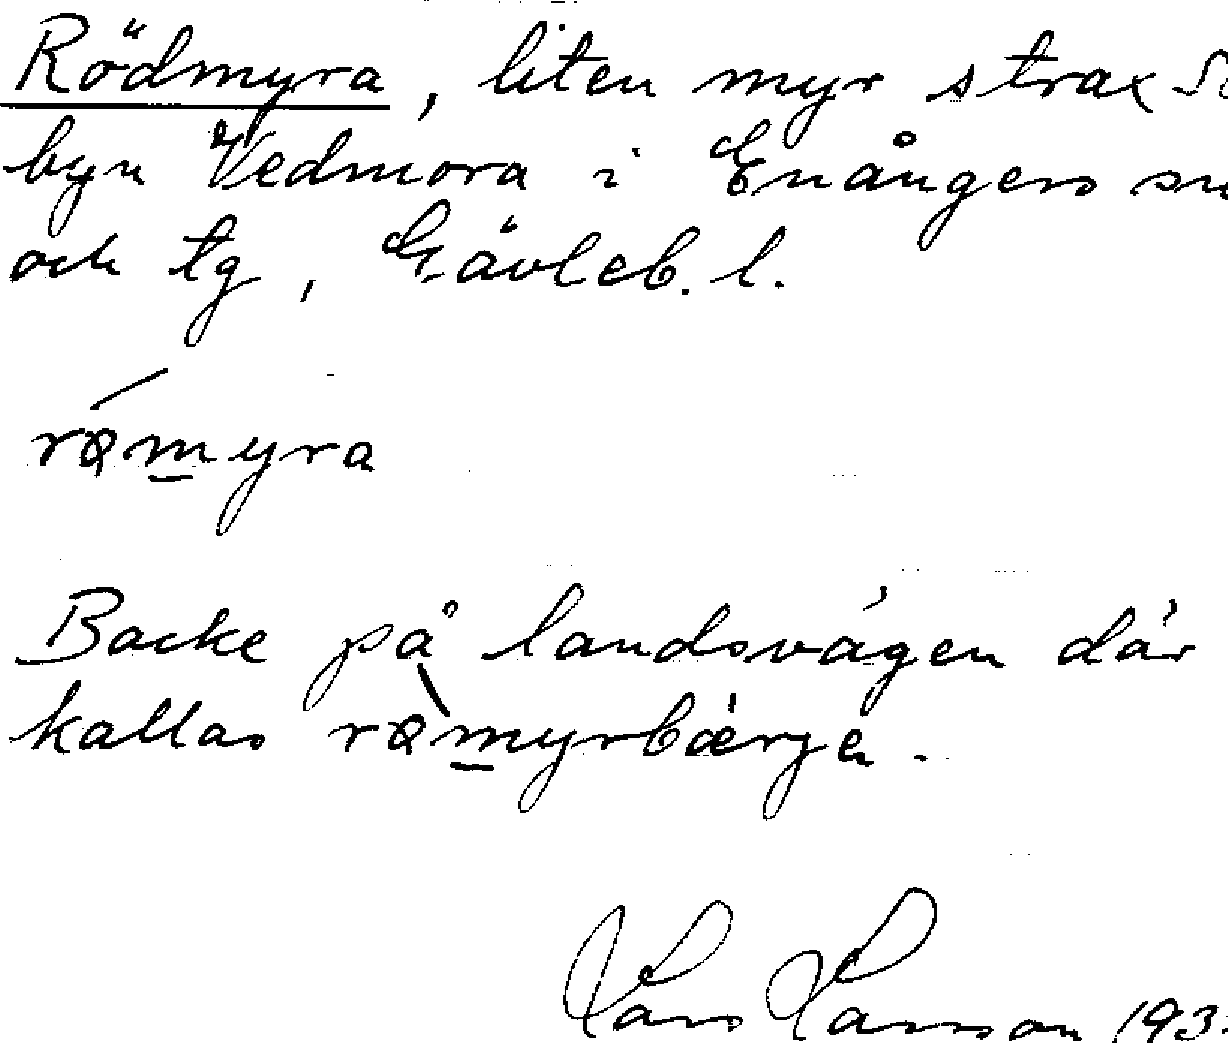 Rödmyra, liten myr strax
byn Vedmora i Enångers sn
och tg, Gävleb. l.
römyra
Backe på landsvägen där
kallas römyrbärjen.
Lars Larsson 193